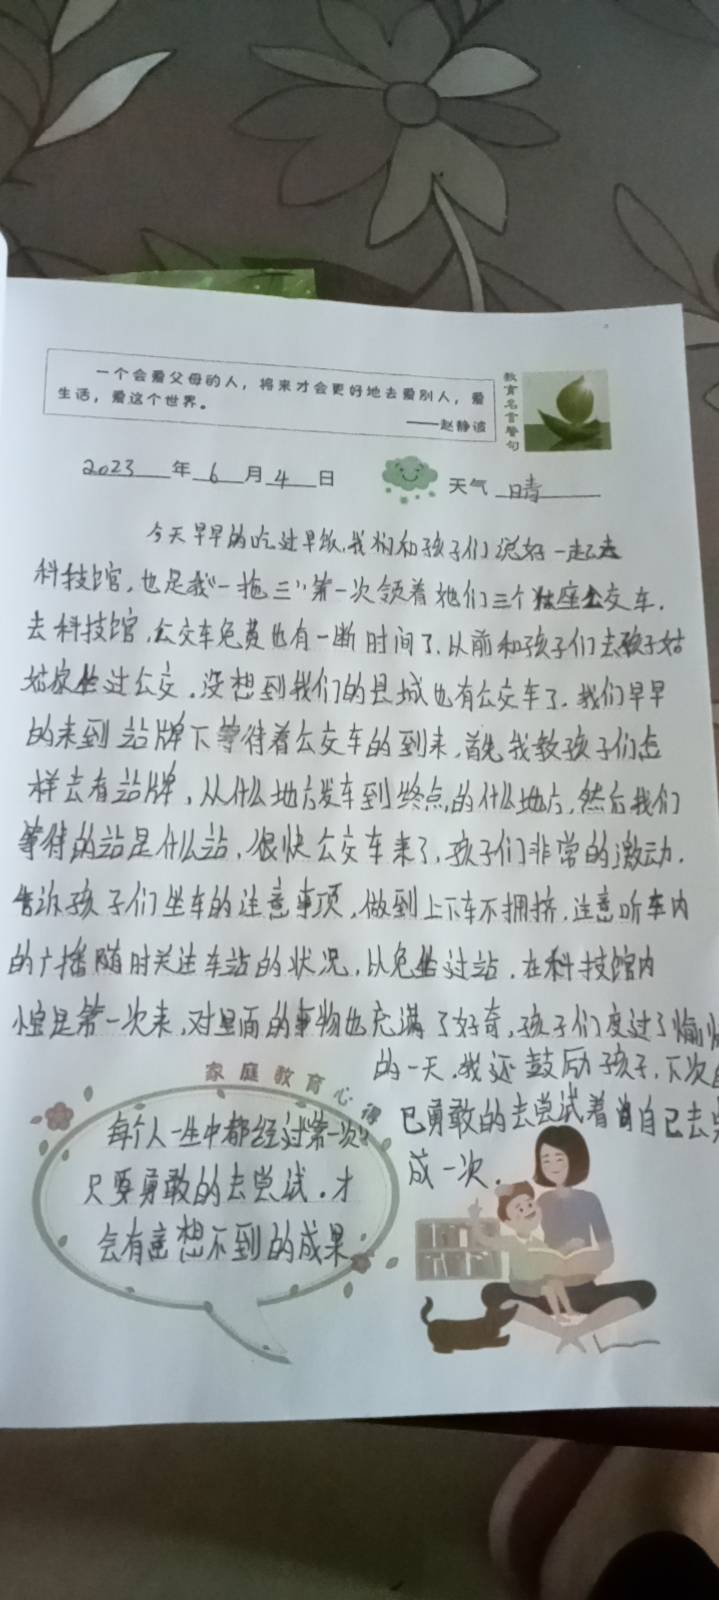 一个会爱父母的人，将来才会更好地去爱别人，爱
生活，爱这个世界。
——赵静波
教育名言警句
2023年6月4日
天气 晴
今天早早的吃过早饭，我们和孩子们说好一起去
科技馆，也是我"一拖三"第一次领着她们三个独座公交车，
去科技馆，公交车免费也有一断时间了，从前和孩子们去孩子姑
姑家坐过公交，没想到我们的县城也有公交车了，我们早早
的来到站牌下等待着公交车的到来，首先我教孩子们怎
样去看站牌，从什么地方发车到终点的什么地方，然后我们
等待的站是什么站，很快公交车来了，孩子们非常的激动，
告诉孩子们坐车的注意事项，做到上下车不拥挤，注意听车内
的广播随时关注车站的状况，以免坐过站，在科技馆内
小宝是第一次来，对里面的事物也充满了好奇，孩子们度过了愉快
的一天，我还鼓励孩子，下次自
己勇敢的去尝试着自己去完
成一次。
家庭教育心得
每个人一生中都经过"第一次"
只要勇敢的去尝试，才
会有意想不到的成果